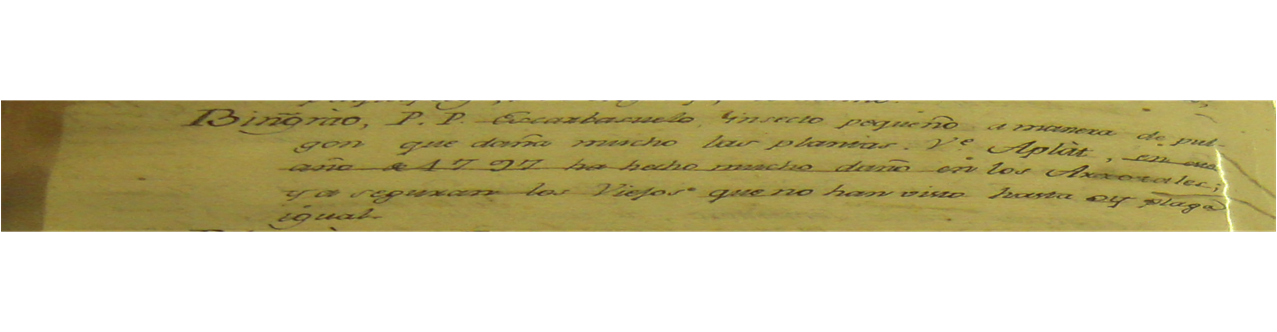 Biñg̃nao, P. P. Escarbasuelo, insecto pequeño a manera de pul-
gon que daña mucho las plantas. Vᵉ Aplàt, en este
año de 1797 ha hecho mucho daño en los Arrozales;
y aseguran los Viejos que no han visto hasta oy plaga
igual.